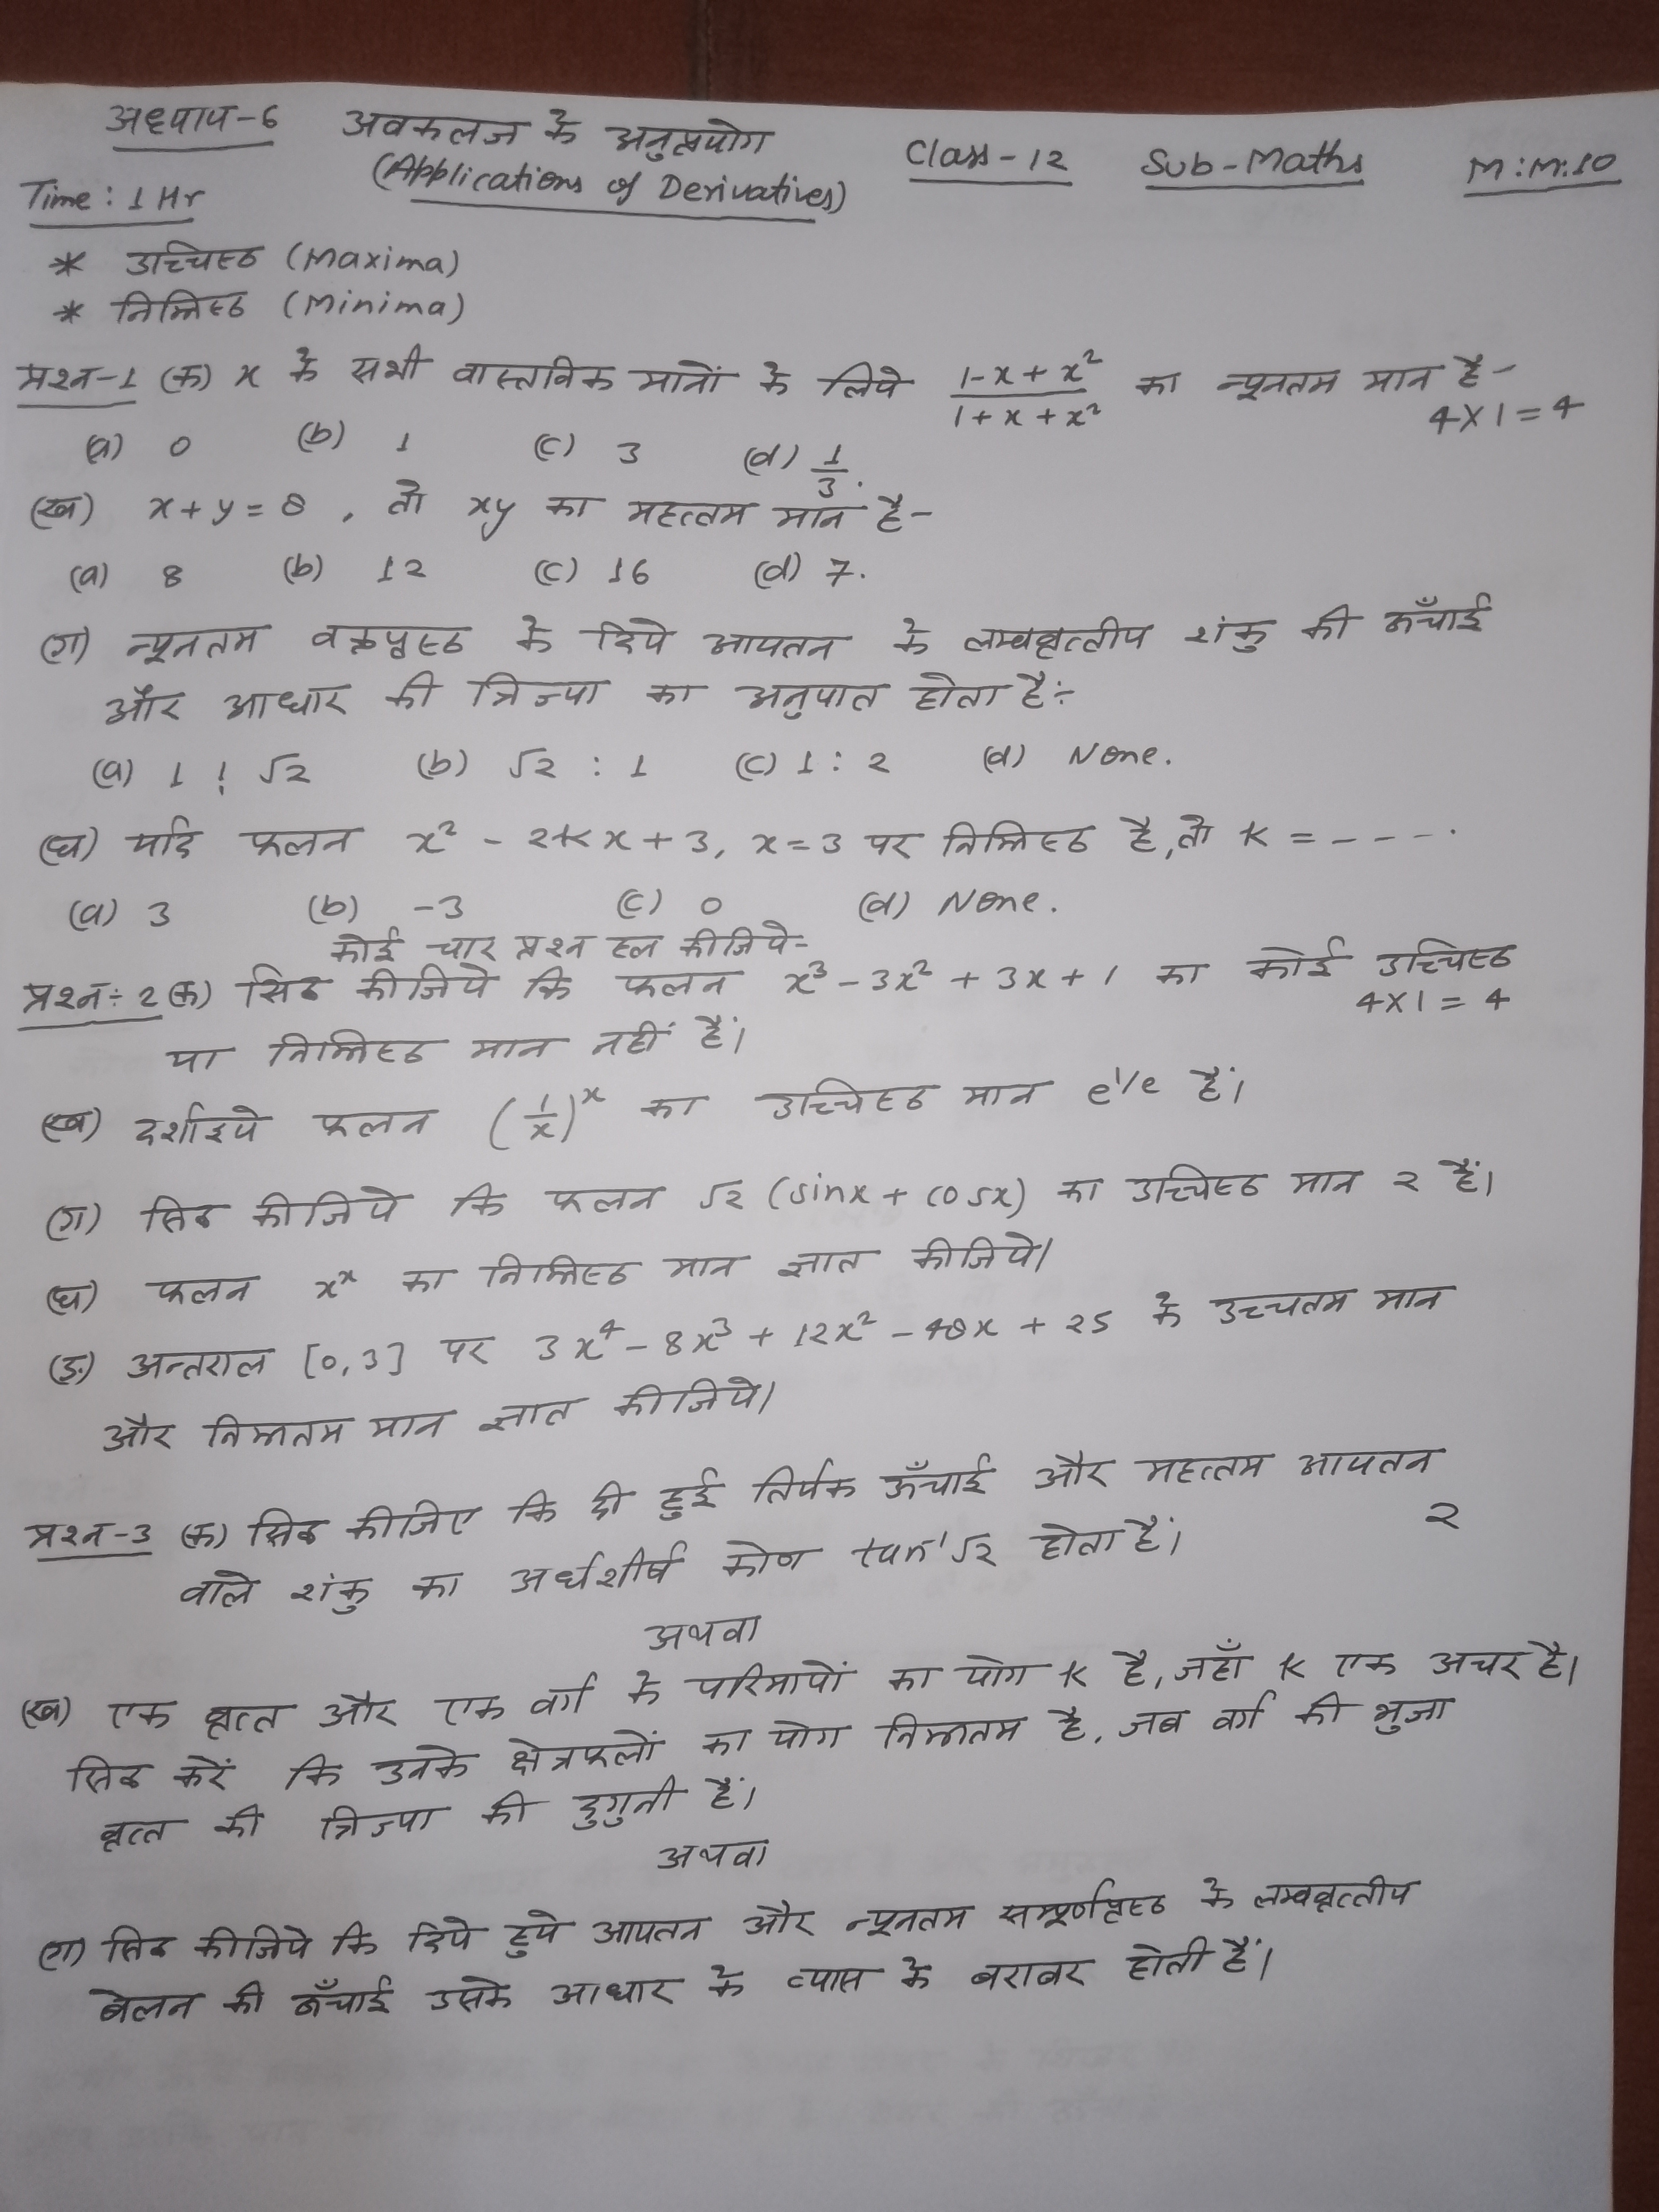 अध्याय-6 अवकलज के अनुप्रयोग Class-12 Sub-Maths M:M:10
Time: 1 Hr (Applications of Derivatives)
* उच्चिष्ठ (Maxima)
* निम्निष्ठ (Minima)
प्रश्न-1 (क) x के सभी वास्तविक मानों के लिये (1-x+x²)/(1+x+x²) का न्यूनतम मान है-
4×1=4
(a) 0 (b) 1 (c) 3 (d) 1/3.
(ख) x+y=8, तो xy का महत्तम मान है-
(a) 8 (b) 12 (c) 16 (d) 7.
(ग) न्यूनतम वक्रपृष्ठ के दिये आयतन के लम्बवृत्तीय शंकु की ऊँचाई
और आधार की त्रिज्या का अनुपात होता है:-
(a) 1 : √2 (b) √2 : 1 (c) 1 : 2 (d) None.
(घ) यदि फलन x² - 2kx + 3, x=3 पर निम्निष्ठ है, तो k = ----.
(a) 3 (b) -3 (c) 0 (d) None.
कोई चार प्रश्न हल कीजिये-
प्रश्न÷2 (क) सिद्ध कीजिये कि फलन x³-3x²+3x+1 का कोई उच्चिष्ठ
4×1=4
या निम्निष्ठ मान नहीं हैं।
(ख) दर्शाइये फलन (1/x)ˣ का उच्चिष्ठ मान e^1/e हैं।
(ग) सिद्ध कीजिये कि फलन √2 (sinx + cosx) का उच्चिष्ठ मान 2 हैं।
(घ) फलन xˣ का निम्निष्ठ मान ज्ञात कीजिये।
(ङ) अन्तराल [0,3] पर 3x⁴-8x³+12x²-48x+25 के उच्चतम मान
और निम्नतम मान ज्ञात कीजिये।
प्रश्न-3 (क) सिद्ध कीजिए कि दी हुई तिर्यक ऊँचाई और महत्तम आयतन
2
वाले शंकु का अर्धशीर्ष कोण tan⁻¹√2 होता हैं।
अथवा
(ख) एक वृत्त और एक वर्ग के परिमापों का योग k है, जहाँ k एक अचर है।
सिद्ध करें कि उनके क्षेत्रफलों का योग निम्नतम है, जब वर्ग की भुजा
वृत्त की त्रिज्या की दुगुनी हैं।
अथवा
(ग) सिद्ध कीजिये कि दिये हुये आयतन और न्यूनतम सम्पूर्णपृष्ठ के लम्बवृत्तीय
बेलन की ऊँचाई उसके आधार के व्यास के बराबर होती हैं।